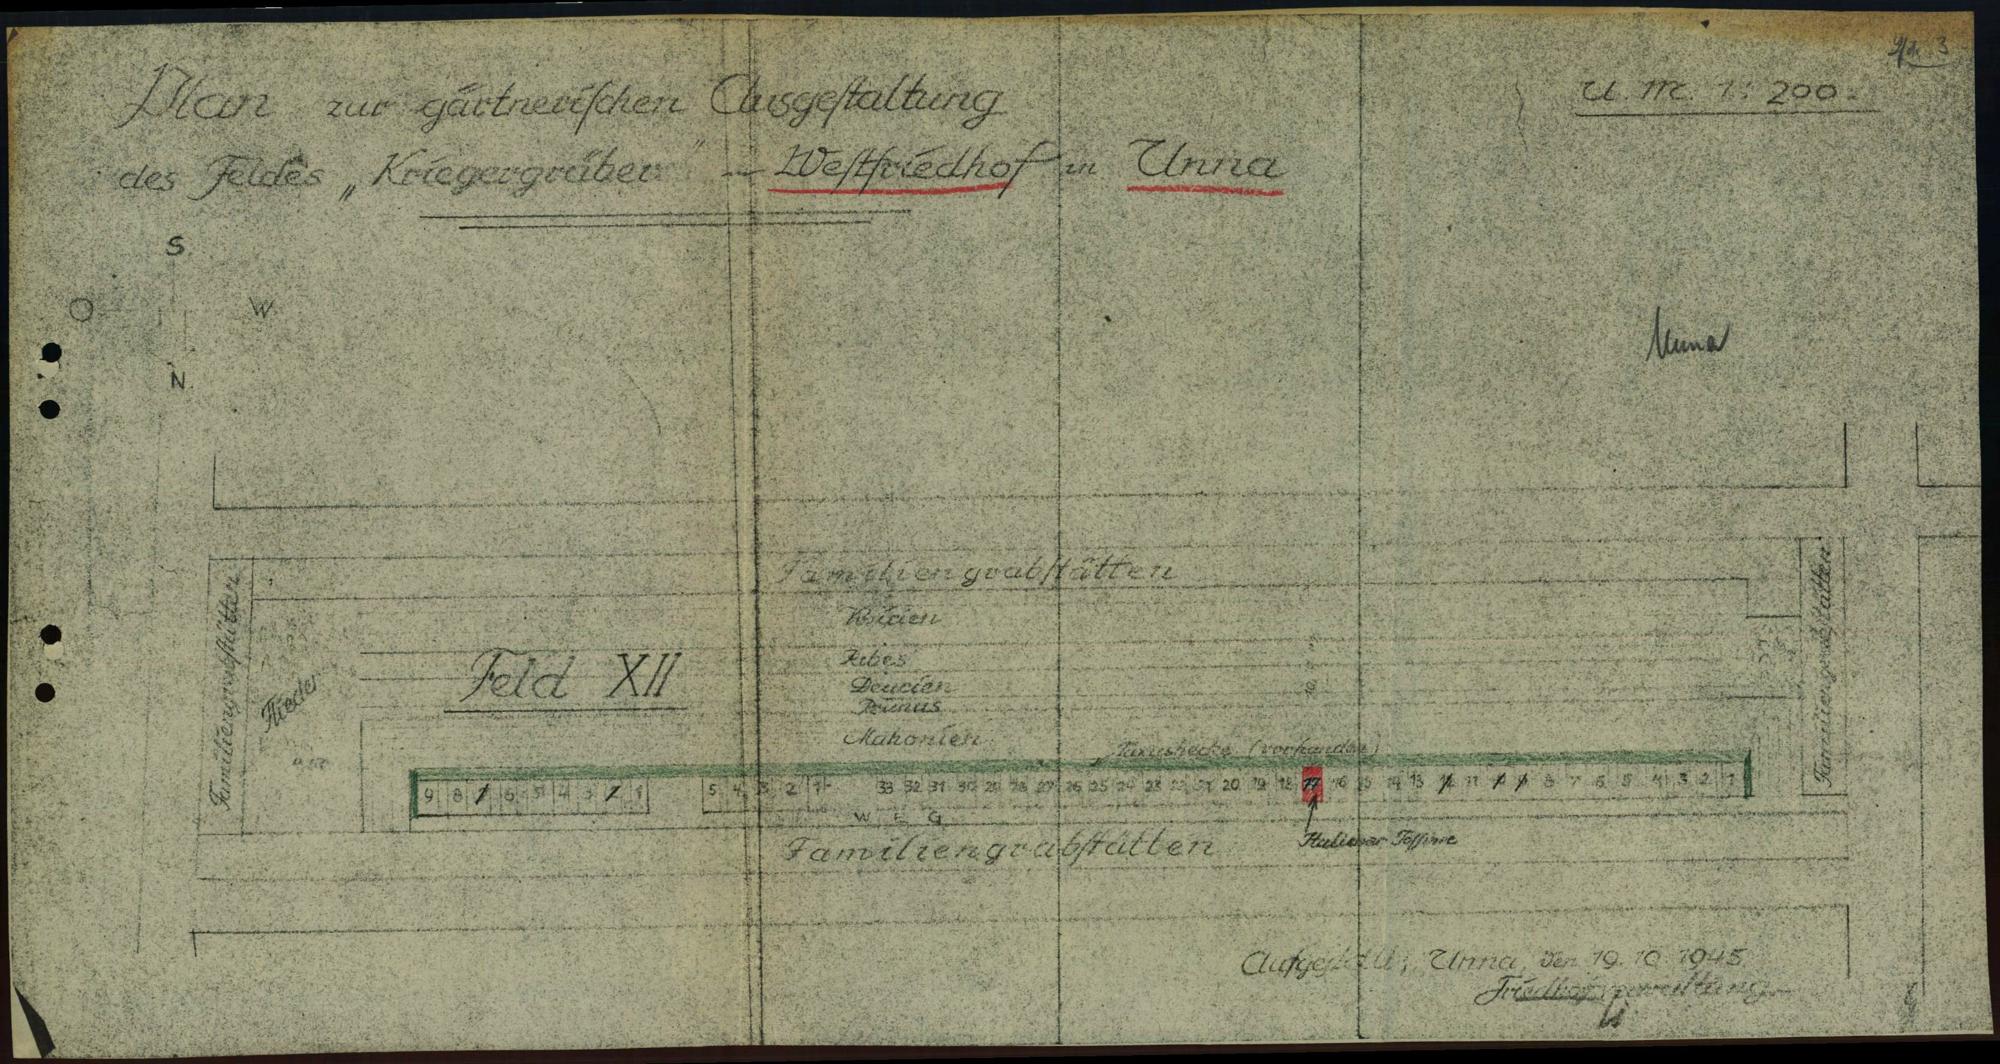 3
Plan zur gärtnerischen Ausgestaltung
U. M. 1:200.
des Feldes „Kriegergräber" — Westfriedhof in Unna
S
O W
N
Unna
Familiengrabstätten
Familiengrabstätten
Familiengrabstätten
Flieder
Feld XII
Ribes
Deucien
Prunus
Mahonien
Taxushecke (vorhanden)
9 8 7 6 5 4 3 2 1
5 4 3 2 1
33 32 31 30 29 28 27 26 25 24 23 22 21 20 19 18 17 16 15 14 13 12 11 10 9 8 7 6 5 4 3 2 1
WEG
Familiengrabstätten
Italiener
Aufgestellt: Unna, den 19.10.1945
Friedhofsverwaltung